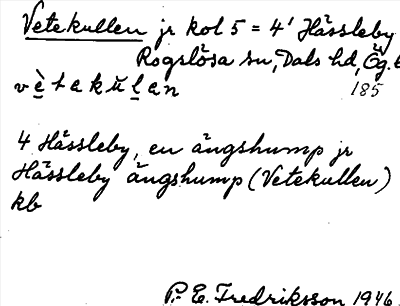 Vetekullen jr kol 5 = 4¹ Hässleby
Rogslösa sn, Dals hd, Ög.
vètakùlan 185
4 Hässleby, en ängshump jr
Hässleby ängshump (Vetekullen)
kb
P. E. Fredriksson 1946